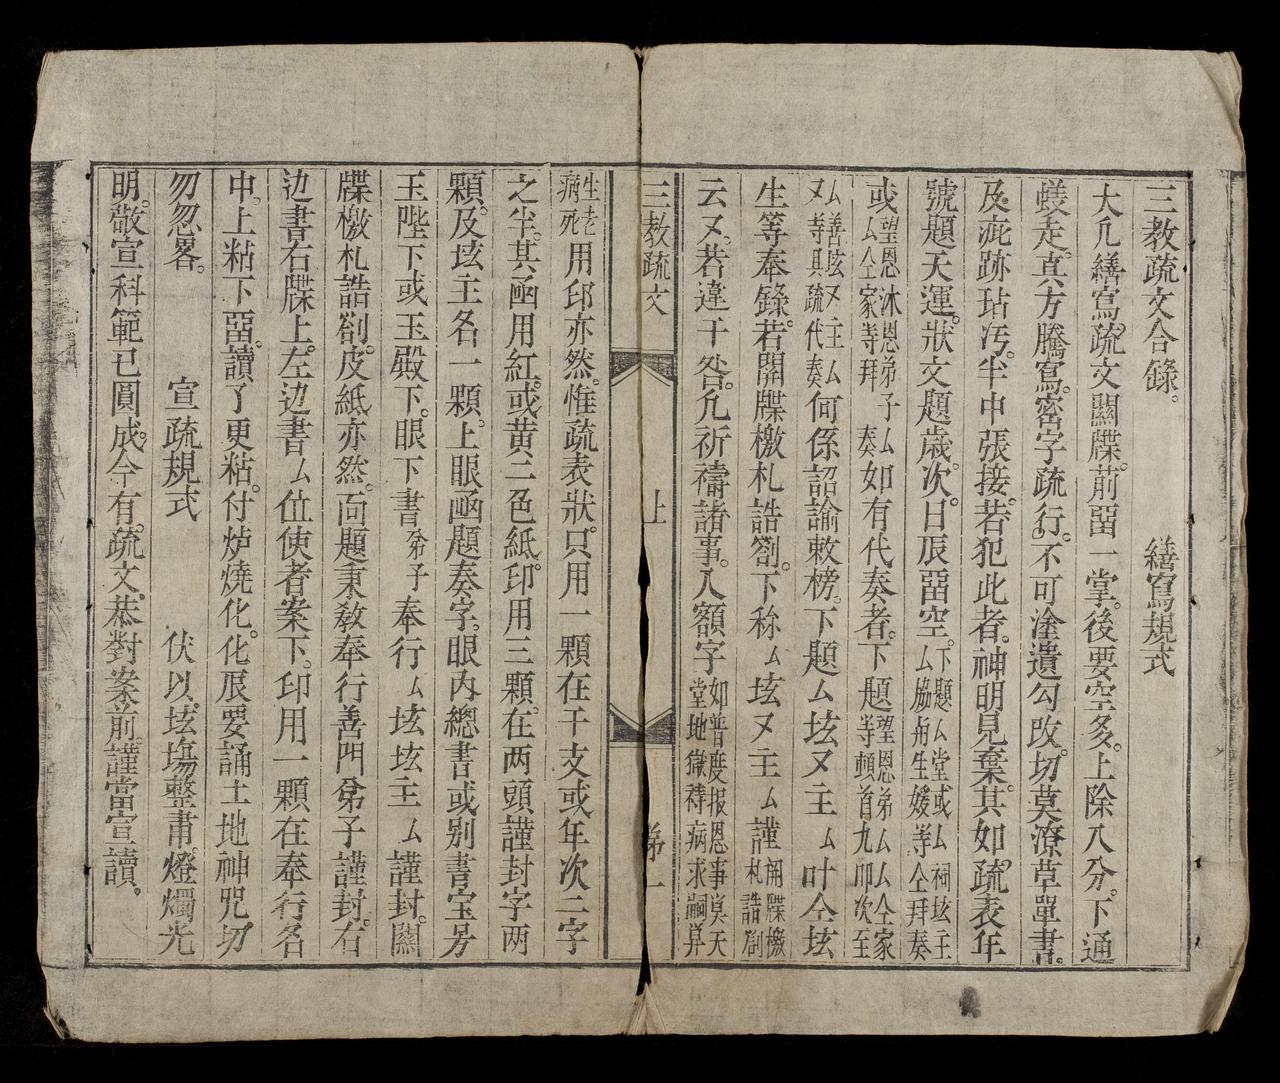 三教疏文合錄。
繕寫規式
大凡繕寫疏文關牒。前畱一掌。後要空多。上除八分。下通
蟻走。真方騰寫。密字疏行。不可塗遺勾改。切莫潦草單書。
及疵跡玷汚。半中張接。若犯此者。神明見棄。其如疏。表年
號題天運。狀文題歲。次。日辰畱空。下題厶堂或厶祠坛主厶脇舟生媛等仝拜奏
或望恩沐恩弟子厶厶仝家等拜奏如有代奏者。下題望恩弟厶厶仝家等頓首九叩次至
厶善坛又主厶又寺具疏代奏何係詔諭敕榜。下題厶坛又主厶叶仝坛
生等奉錄。若關牒檄札誥劄。下称厶坛又主厶謹關牒檄札誥劄
云又。若違干咎。凡祈禱諸事。入額字如普度报恩事奠天堂地獄祷病求嗣昇
三教疏文 上 第一
生老病死用印亦然。惟疏表狀。只用一顆在干支或年次二字
之半。其凾用紅。或黄二色紙。印用三顆。在两頭謹封字两
顆。及坛主名一顆。上眼凾題奏字。眼內總書或别書宝号
玉陛下或玉殿下。眼下書弟子奉行厶坛坛主厶謹封。關
牒檄札誥劄。皮紙亦然。面題秉敎奉行善門弟子謹封。右
边書右牒上。左边書厶位使者案下。印用一顆在奉行名
中。上粘下畱。讀了更粘。付炉燒化。化辰要誦土地神咒切
勿忽畧。
宣疏規式
伏以。坛塲整肅。燈燭光
明。敬宣科範已圓成。今有。疏文。恭對案前。謹當宣讀。